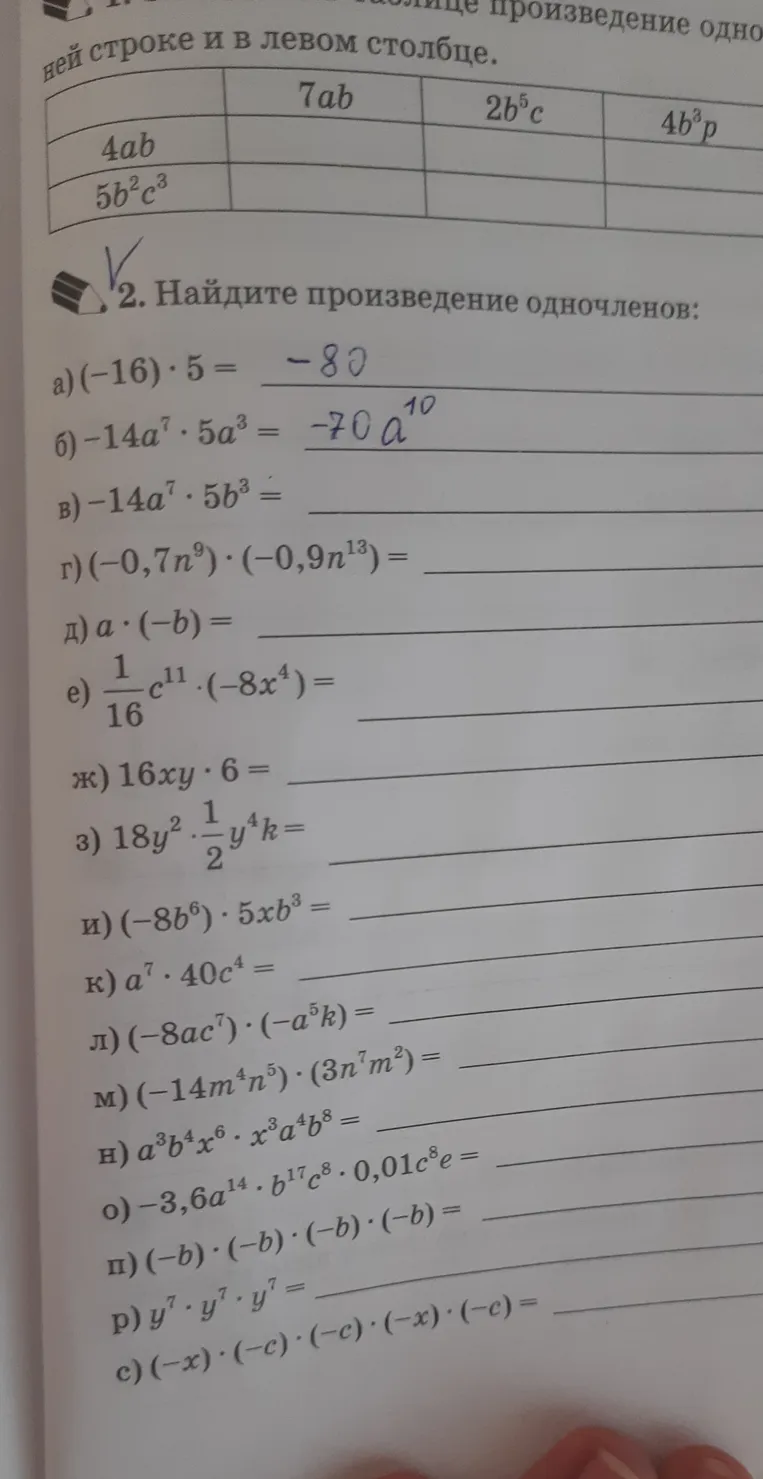 произведение одно
ней строке и в левом столбце.
7ab 2b⁵c 4b³p
4ab
5b²c³
2. Найдите произведение одночленов:
а) (−16) · 5 = −80
б) −14a⁷ · 5a³ = −70a¹⁰
в) −14a⁷ · 5b³ =
г) (−0,7n⁹) · (−0,9n¹³) =
д) a · (−b) =
е) 1/16 c¹¹ · (−8x⁴) =
ж) 16xy · 6 =
з) 18y² · 1/2 y⁴k =
и) (−8b⁶) · 5xb³ =
к) a⁷ · 40c⁴ =
л) (−8ac⁷) · (−a⁵k) =
м) (−14m⁴n⁵) · (3n⁷m²) =
н) a³b⁴x⁶ · x³a⁴b⁸ =
о) −3,6a¹⁴ · b¹⁷c⁸ · 0,01c⁸e =
п) (−b) · (−b) · (−b) · (−b) =
р) y⁷ · y⁷ · y⁷ =
с) (−x) · (−c) · (−c) · (−x) · (−c) =